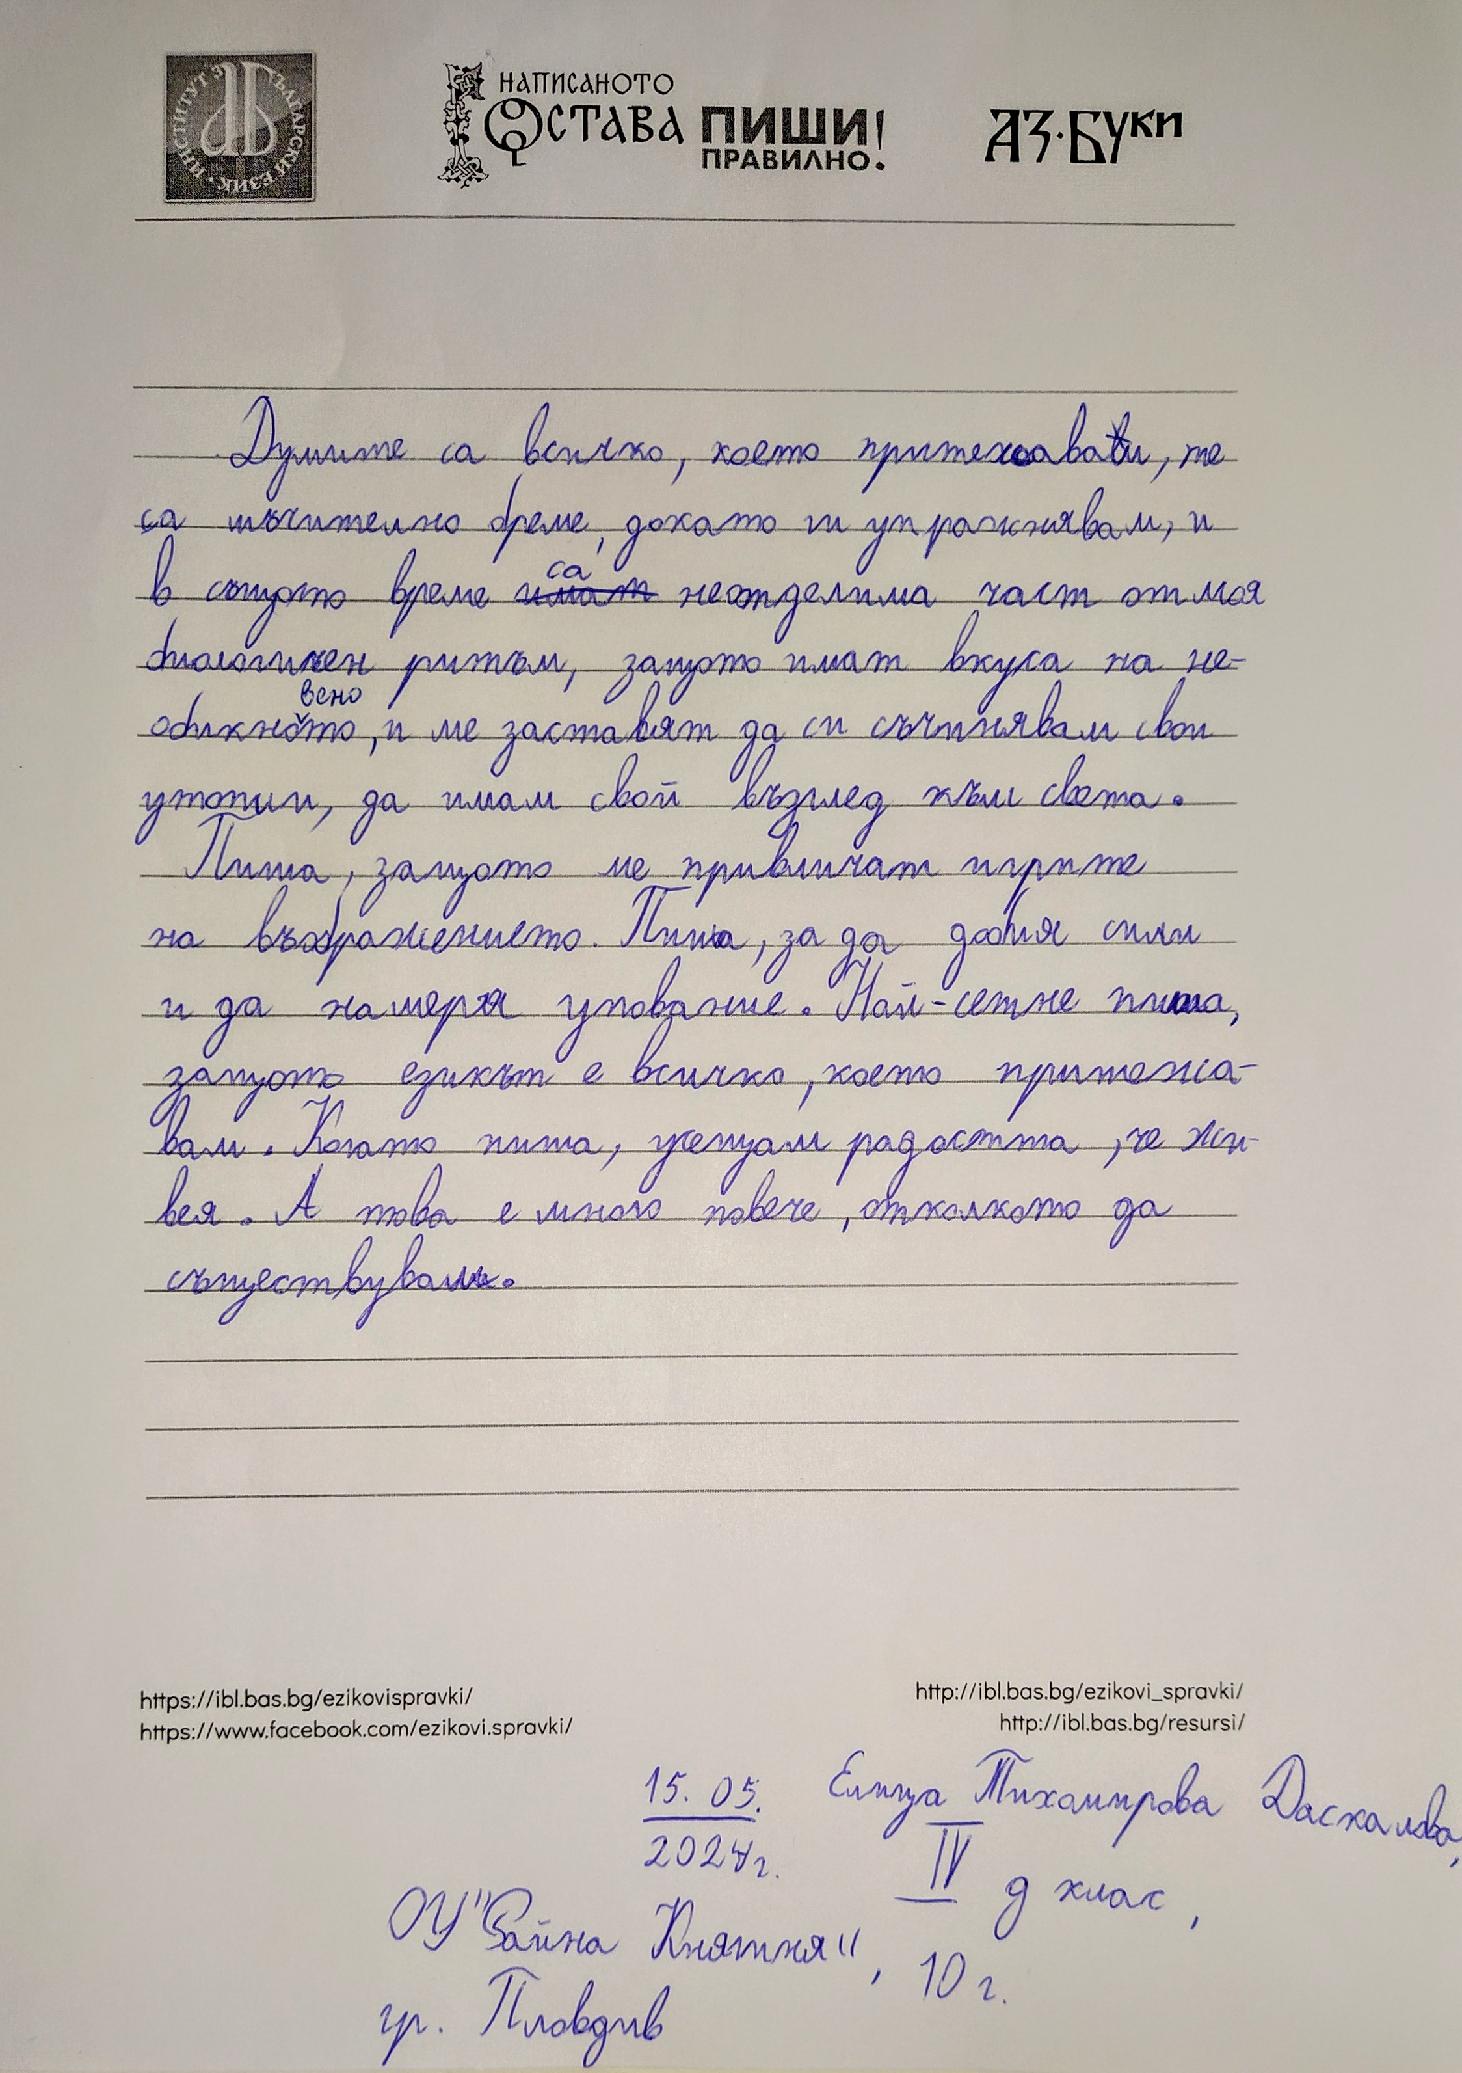 ИНСТИТУТ ЗА БЪЛГАРСКИ ЕЗИК
НАПИСАНОТО
ОСТАВА ПИШИ!
ПРАВИЛНО.
АЗ·БУКИ
Думите са всичко, което притежавам, те
са мъчително бреме, докато ги упражнявам, и
в същото време имат са неотделима част от моя
биологичен ритъм, защото имат вкуса на не-
обикновеното, и ме заставят да си съчинявам свои
утопии, да имам свой възглед към света.
Пиша, защото ме привличат игрите
на въображението. Пиша, за да добия сили
и да намеря упование. Най-сетне пиша,
защото езикът е всичко, което притежа-
вам. Когато пиша, усещам радостта, че жи-
вея. А това е много повече, отколкото да
съществувам.
https://ibl.bas.bg/ezikovispravki/
https://www.facebook.com/ezikovi.spravki/
http://ibl.bas.bg/ezikovi_spravki/
http://ibl.bas.bg/resursi/
15.05.
2024г.
Елица Тихомирова Даскалова,
IV д клас,
ОУ "Райна Княгиня", 10 г.
гр. Пловдив